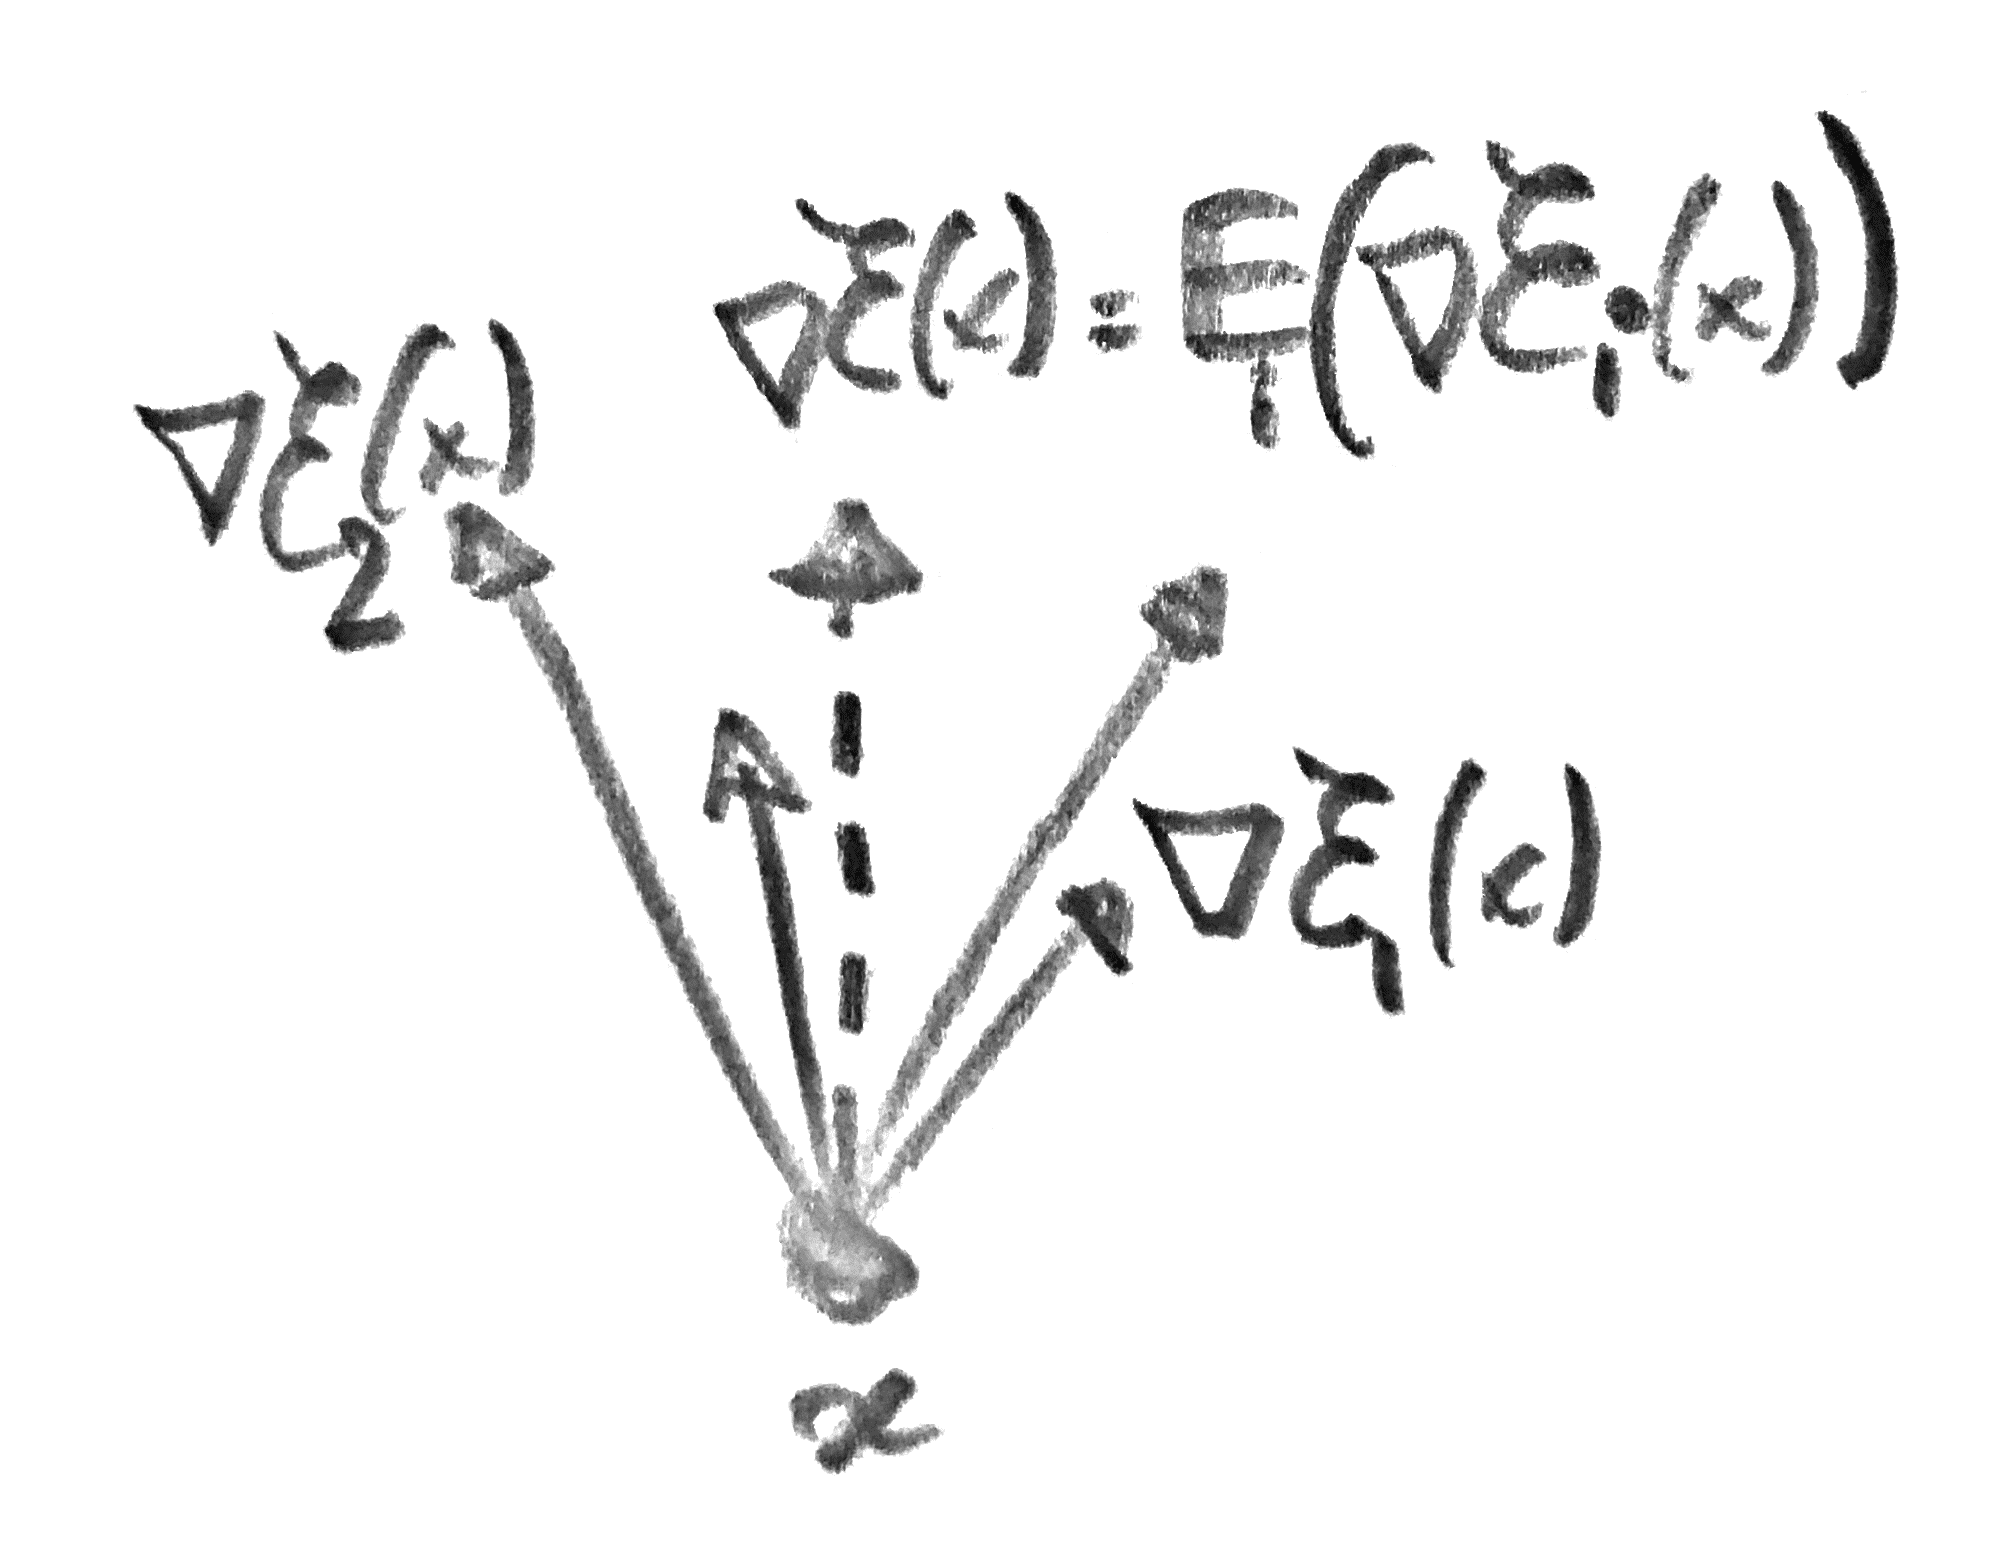 ∇ξ(x) = E_i(∇ξ_i(x))
∇ξ_2(x)
∇ξ_1(x)
x